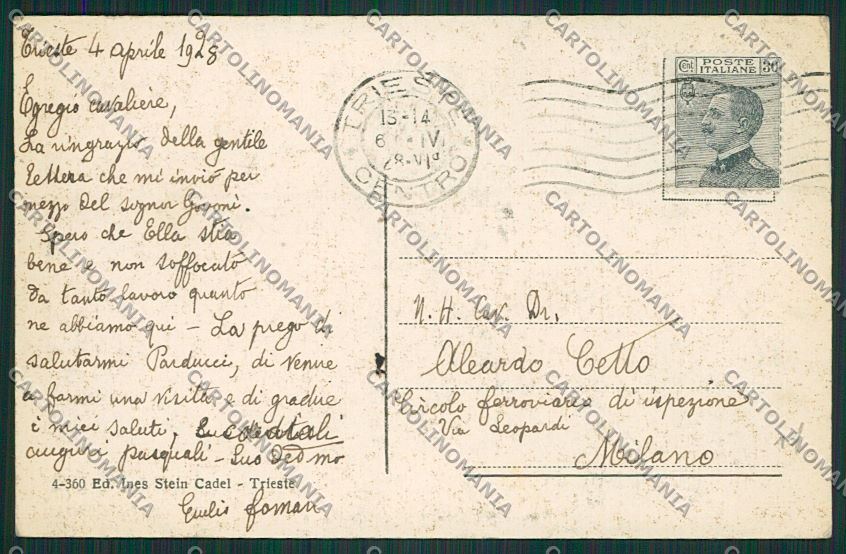 Trieste 4 aprile 1928
Egregio cavaliere,
La ringrazio della gentile
lettera che mi inviò per
mezzo del signor Govoni.
Spero che Ella stia
bene e non soffocato
da tanto lavoro quanto
ne abbiamo qui - La prego di
salutarmi Parducci, di venire
a farmi una visita e di gradire
i miei saluti, e cordiali
auguri pasquali - Suo devmo
4-360 Ed. Ines Stein Cadel - Trieste
Giulio
TRIESTE
13-14
6 IV
28-VI
CENTRO
Cent POSTE ITALIANE 30
N. H. Cav. Dr.
Aleardo Cetto
Circolo ferroviario di ispezione
Via Leopardi
Milano
CARTOLINOMANIA